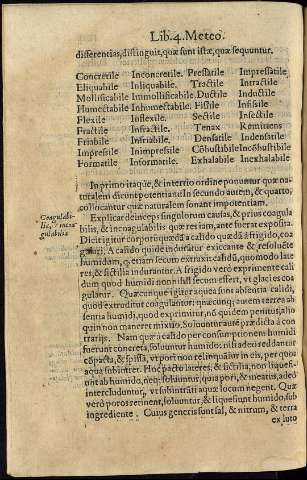 Lib. 4. Meteo.
differentias, distinguit, quæ sunt istæ, quæ sequuntur.
Concretile Inconcretile. Pressatile Impressatile
Eliquabile Inliquabile. Tractile Intractile
Mollificabile Immollificabile. Ductile Inductile
Humectabile Inhumectabile. Fissile Infissile
Flexile Inflexile. Sectile Insectile
Fractile Infractile. Tenax Remittens
Friabile Infriabile. Densatile Indensatile
Impresile Inimpresile Cōbustibile Incōbustibile
Formatile Informatile. Exhalabile Inexhalabile
In primo itaque, & interiso ordine ponuntur quæ naturalem
dicunt potentiam. In secundo autem, & quarto,
collocantur quæ naturalem sonant impotentiam.
Coagulabile,
& incoagulabile
Explicat deinceps singulorum causas, & prius coagulabilis,
& incoagulabilis quæ res iam, ante fuerat exposita.
Dicit igitur corpori quædā a calido quædā a frigido, coagulari.
A calido quidē indursatur exiccante & resoluēte
humidum, & etiam secum extraxit calidū, quo modo lateres,
& fictilia indurantur. A frigido verò exprimente calidum
quod humidi non nihil secum effert, vt glacies coagulatur.
Quæcunque igitur aquea sunt absentia calidi,
quod extruditat coagulantur: quæcunque autem terrea absentia
humidi, quod exprimitur, nō quidem penitus, alioquin
non maneret mixtio. Soluuntur autē prædicta à contrarijs.
Nam quæ à calido per consumptionem humidi
fuerunt concreta, soluuntur humido: nisi adeò reddantur
cōpacta, & spissa, vt pori non relinquātur in eis, per quos
aqua subintret. Hoc pacto lateres, & fictilia, non liquefiunt
ab humido, nec soluuntur, quia pori, & meatus, adeò
intercluduntur, vt subintrāti aquæ locum negent. Quæ
verò poros retinent, soluuntur, & liquefiunt humido, subingrediente.
Cuius generis sunt sal, & nitrum, & terra
ex luto